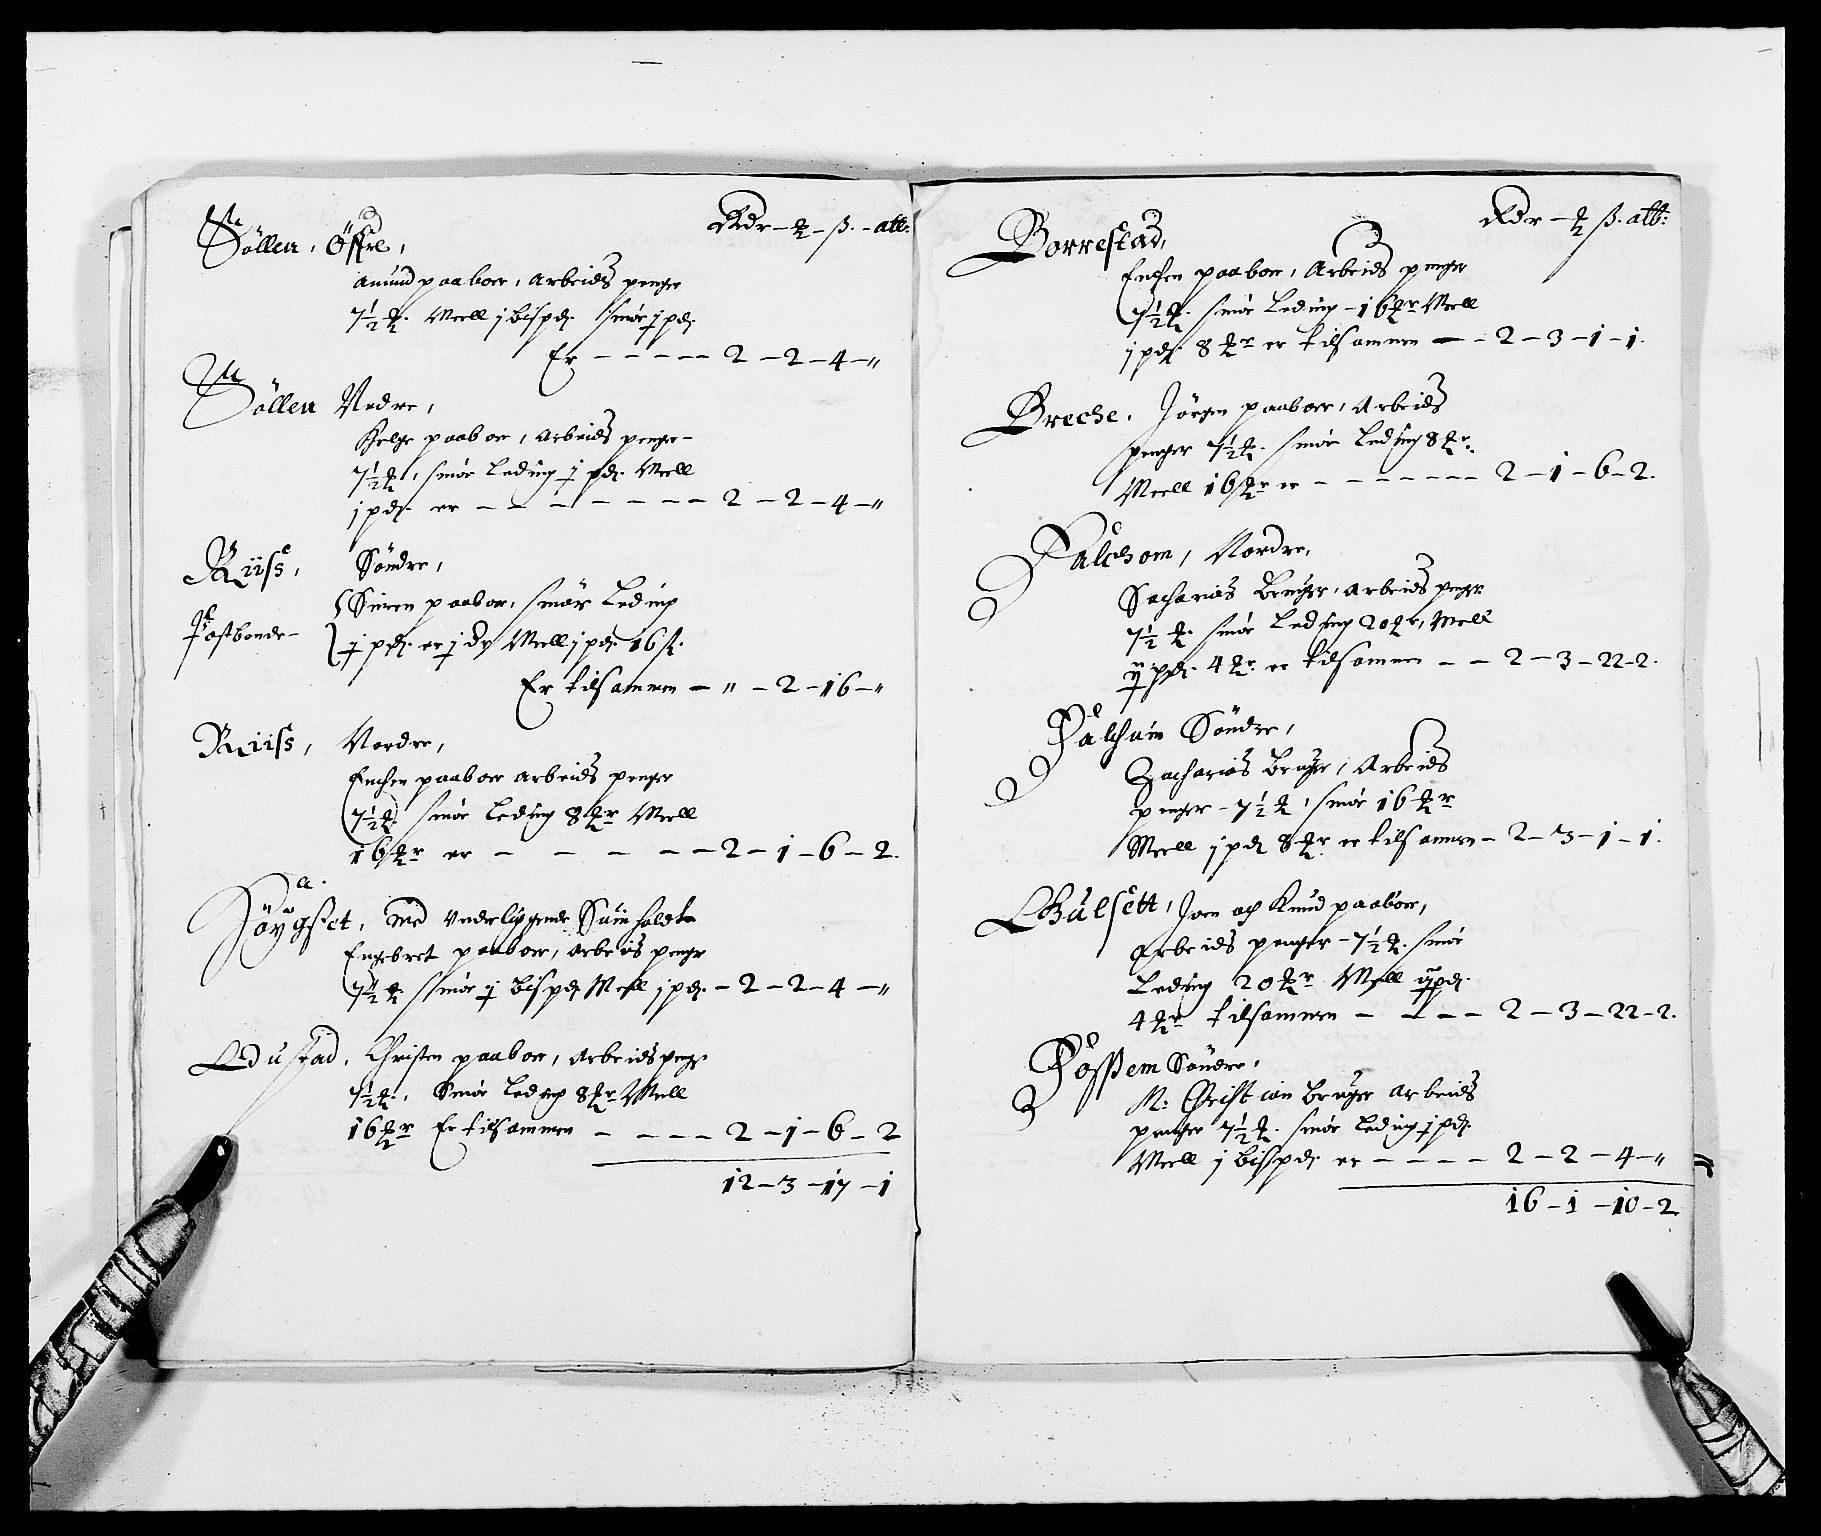 Rdr - ℔ - ß. - alb:
Söllen, Öffre,
Amund paaboer, Arbeids penger
7½ ℔. Meell j bispd. smör j pd.
Er - - - - - 2 - 2 - 4 - "
Söllen Nedre,
Helge paaboer, Arbeids penger -
7½ ℔, smör Leding j pd. Meell
j pd. er - - - - - - - 2 - 2 - 4 - "
Riiss, Söndre,
Sören paaboer, smör Leding
Postbonde -
j pd. er j Dr Meell j pd. 16 ß.
Er tilsammen - " - 2 - 16 - "
Riiss, Nordre,
Enchen paaboer Arbeids penger
7½ ℔. smör Leding 8 ℔r Meell
16 ℔r er - - - - - 2 - 1 - 6 - 2.
a.
Höygset, med Underliggende
Engebret paaboer, Arbeids penger
7½ ℔ smör j bispd Meell j pd. - 2 - 2 - 4 - "
Edustad, Christen paaboer, Arbeids penger
7½ ℔, Smör Leding 8 ℔r Meell
16 ℔r Er tilsammen - - - - 2 - 1 - 6 - 2
12 - 3 - 17 - 1
Rdr - ℔ ß. alb:
Borrestad,
Enchen paaboer, Arbeids penger
7½ ℔. smör Leding - 16 ℔r Meell
j pd. 8 ℔r er tilsammen - - 2 - 3 - 1 - 1.
Breche, Jörgen paaboer, Arbeids
penger 7½ ℔. smör Leding 8 ℔r.
Meell 16 ℔r er - - - - - - - 2 - 1 - 6 - 2.
Falchom, Nordre,
Sacharias Bruger, Arbeids penger
7½ ℔. smör Leding 20 ℔r, Meell
ij pd. 4 ℔r. er tilsammen - - 2 - 3 - 22 - 2.
Falchum Söndre,
Zacharias Bruger, Arbeids
penger - 7½ ℔, smör 16 ℔r
Meell j pd 8 ℔r er tilsammen - 2 - 3 - 1 - 1.
Gulsett, Joen och Knud paaboer,
Arbeids penger - 7½ ℔. smör
Leding 20 ℔r Meell ij pd.
4 ℔r tilsammen - - - - 2 - 3 - 22 - 2.
Fossem Söndre,
M: Christian Bruger Arbeids
penger 7½ ℔. smör Leding j pd.
Meell j bispd. er - - - - 2 - 2 - 4 - "
16 - 1 - 10 - 2